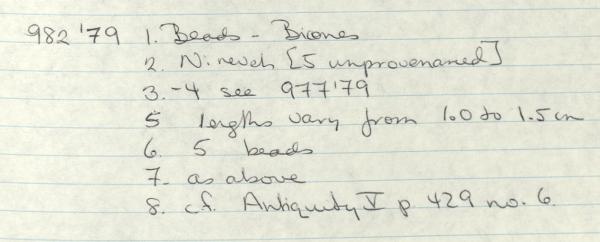 982 '79 1. Beads - Bicones
2. Nineveh [5 unprovenanced]
3.-4 see 977'79
5 lengths vary from 1.0 to 1.5 cm
6. 5 beads
7. as above
8. cf. Antiquity V p 429 no. 6.